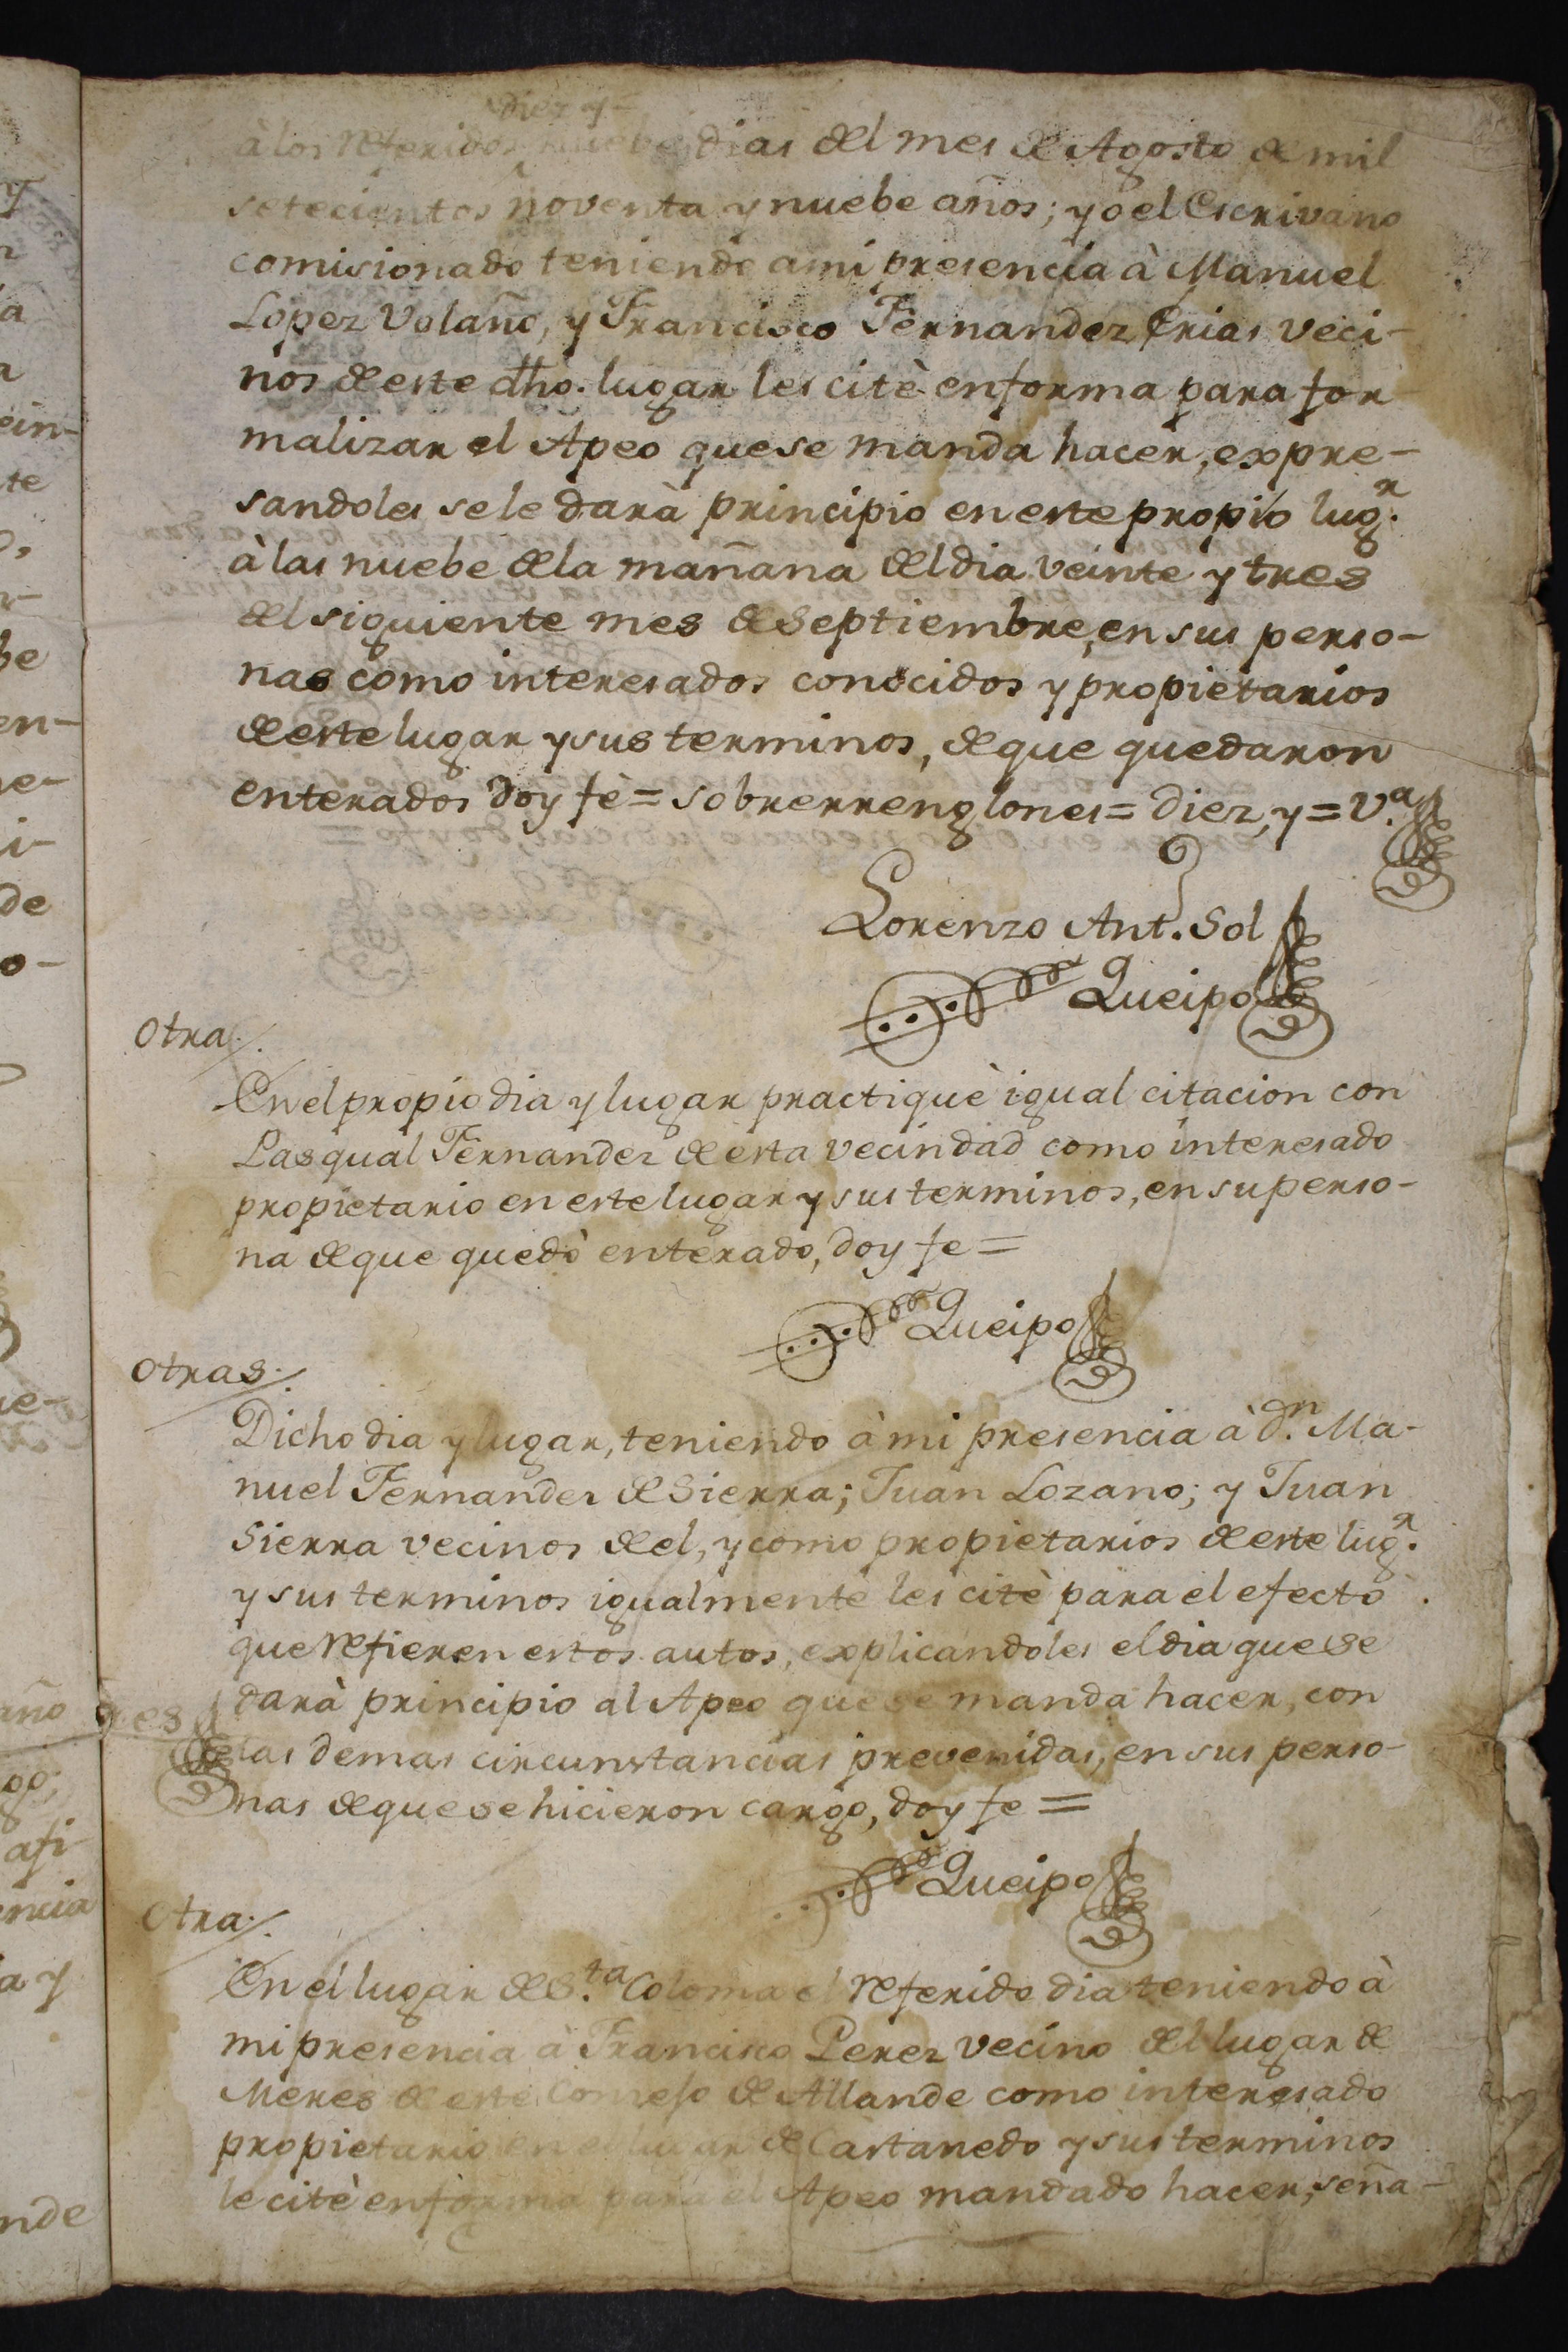 diez y
à los referidos nuebe, dias del mes de Agosto de mil
setecientos noventa y nuebe años; yo el Escrivano
comisionado teniendo a mi presencia à Manuel
Lopez Volaño, y Francisco Fernandez Erias veci-
nos de este dho. lugar les citè en forma para for
malizar el Apeo que se manda hacer, expre-
sandoles se le darà principio en este propio lug.r
à las nuebe de la mañana del dia veinte y tres
del siguiente mes de Septiembre, en sus perso-
nas como interesados conocidos y propietarios
de este lugar y sus terminos, de que quedaron
enterados doy fè = sobrerrenglones = diez, y = V.a
Lorenzo Ant. Sol
Queipo
Otra.
En el propio dia y lugar practiquè igual citacion con
Pasqual Fernandez de esta vecindad como interesado
propietario en este lugar y sus terminos, en su perso-
na de que quedò enterado, doy fe =
Queipo
Otras.
Dicho dia y lugar, teniendo à mi presencia à d.n Ma-
nuel Fernandez de Sierra; Juan Lozano; y Juan
Sierra vecinos de el, y como propietarios de este lug.r
y sus terminos igualmente les citè para el efecto
que refieren estos autos, explicandoles el dia que se
darà principio al Apeo que se manda hacer, con
las demas circunstancias prevenidas, en sus perso-
nas de que se hicieron cargo, doy fe =
Queipo
Otra.
En el lugar de S.ta Coloma el referido dia teniendo à
mi presencia à Francisco Perez vecino del lugar de
Meres de este Consejo de Allande como interesado
propietario en el lugar de Castanedo y sus terminos
le citè en forma para el Apeo mandado hacer, seña-